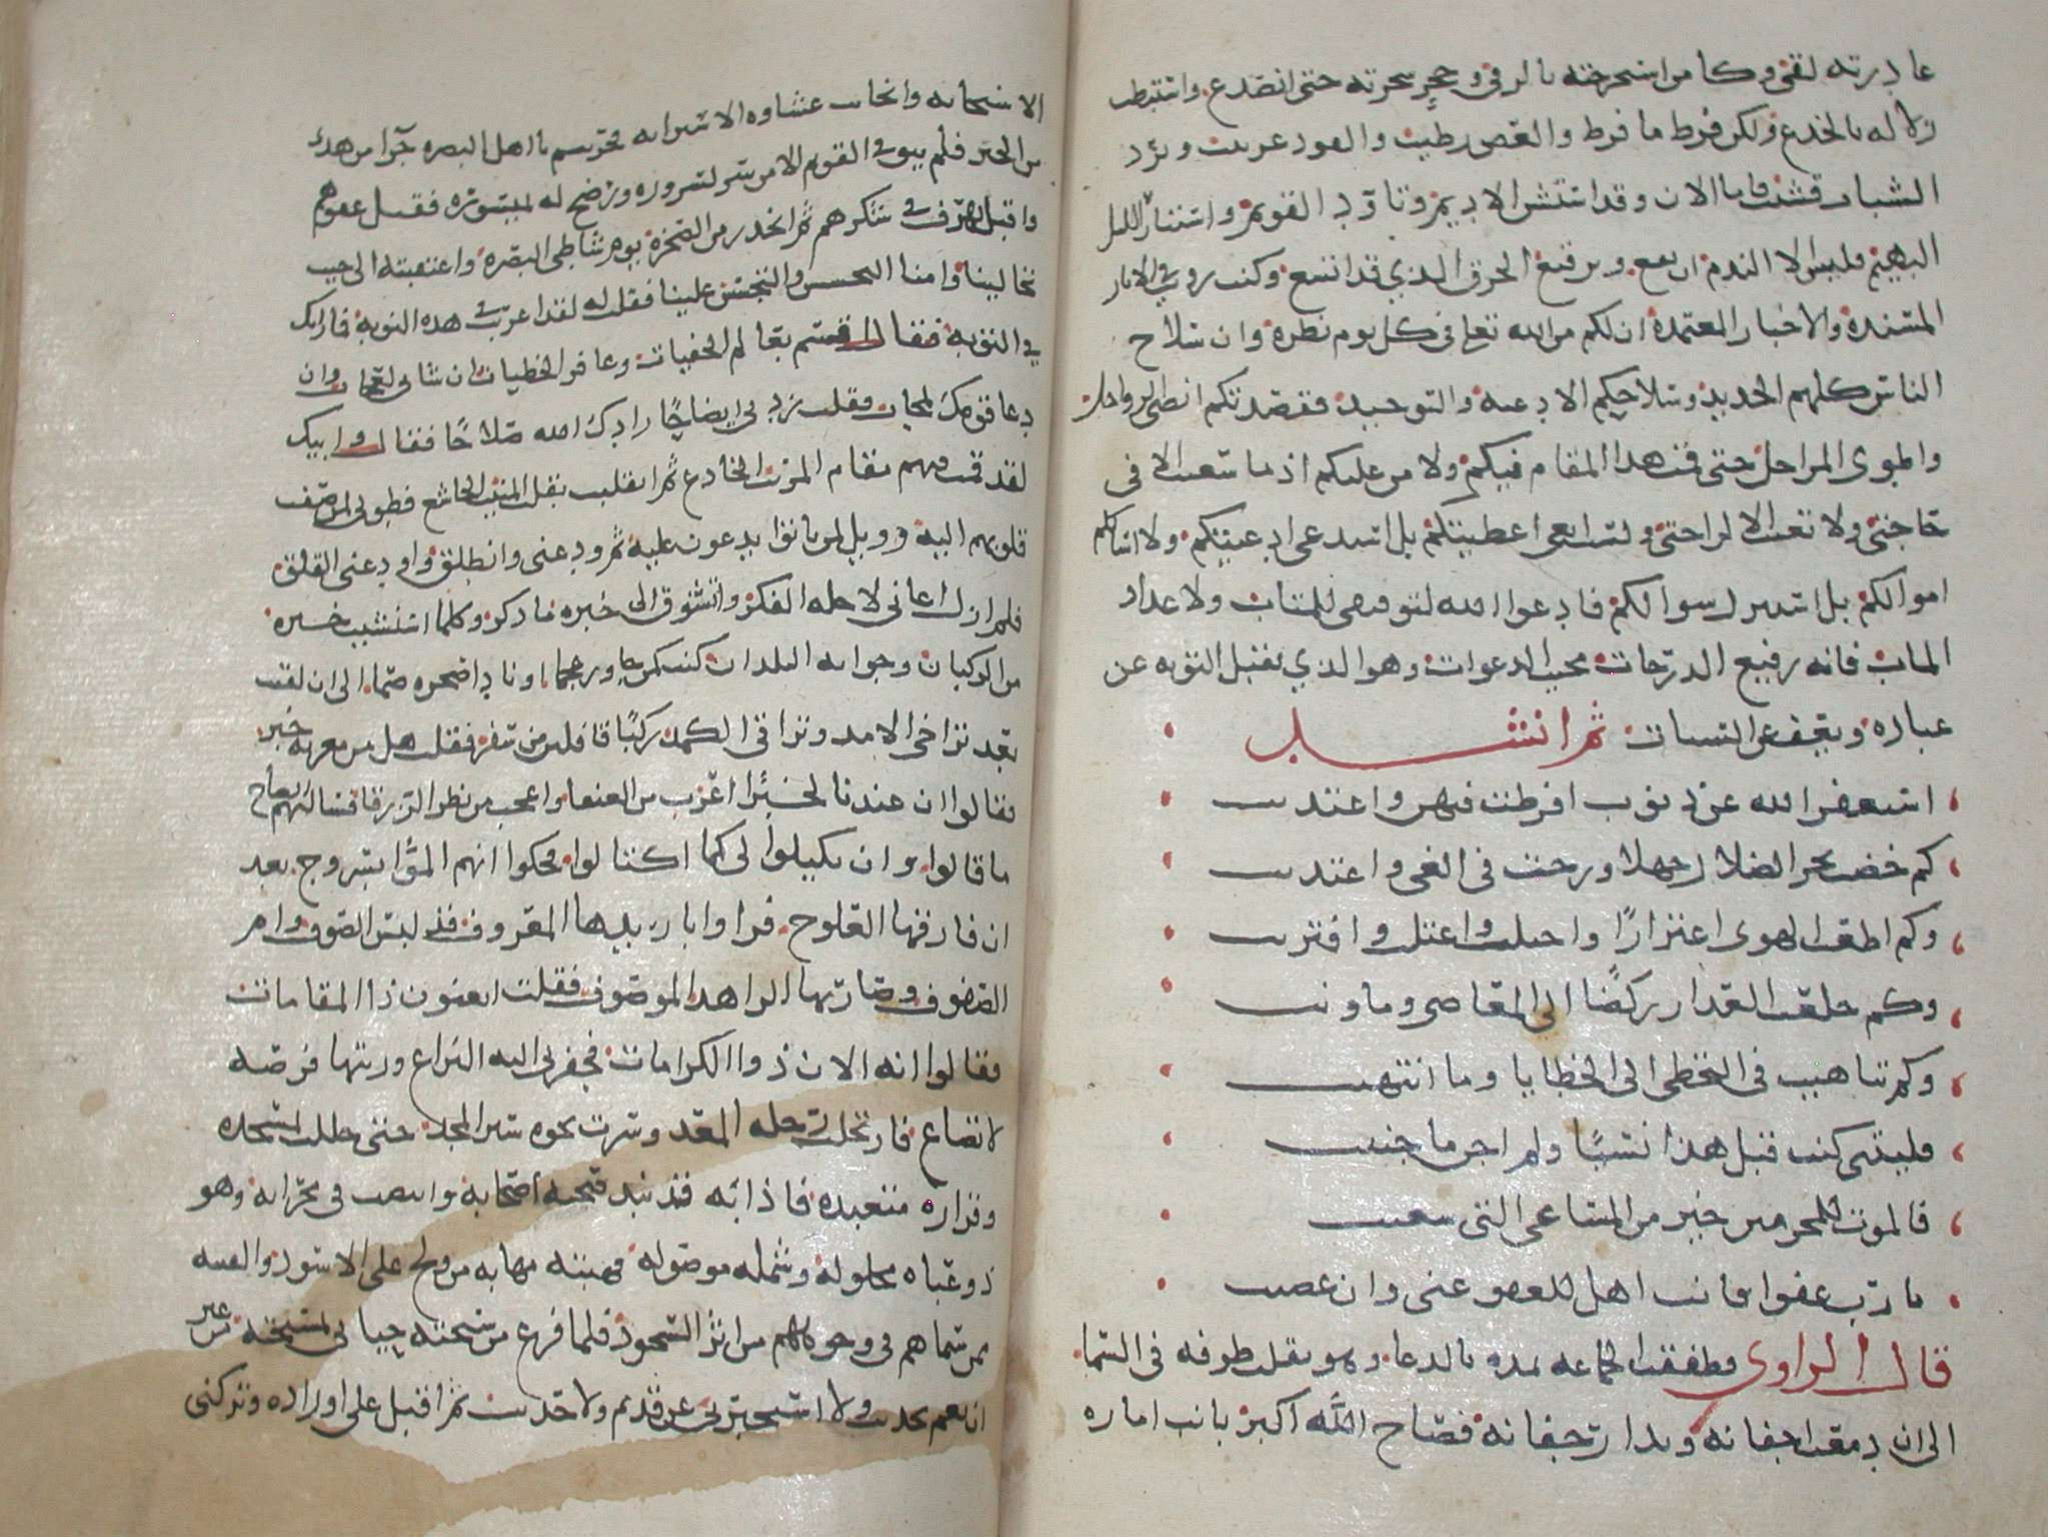 غادرته لقى وكامن استخرجته بالرقى وحجر سحرته حتى انصدع واستنبطت
زلاله بالخدع ولكن فرط ما فرط والغصن رطيب والفود غربيب وبرد
الشباب قشيب فاما الان وقد استشن الاديم وتاود القويم واستنار الليل
البهيم فليس الا الندم ان نفع وترقيع الخرق الذي قد اتسع وكنت رويت في الاثار
المسنده والاخبار المعتمده ان لكم من الله تعالى في كل يوم نظره وان سلاح
الناس كلهم الحديد وسلاحكم الادعيه والتوحيد فقصدتكم انضى الرواحل
واطوى المراحل حتى قمت هذا المقام فيكم ولا من عليكم اذ ما سعيت الا فى
حاجتى ولا تعبت الا لراحتى ولست ابغى اعطيتكم بل استدعى ادعيتكم ولا اسالكم
اموالكم بل استنزل سوالكم فادعوا الله لتوفيقى للمتاب والاعداد
للماب فانه رفيع الدرجات مجيب الدعوات وهو الذي يقبل التوبه عن
عباده ويعفو عن السيات ثم انشد
استغفر الله من ذنوب افرطت فيهن واعتديت
كم خضت بحر الضلال جهلا ورحت فى الغى واغتديت
وكم اطعت الهوى اغترارًا واحتلت واغتلت وافتريت
وكم خلعت العذار ركضًا الى المعاصى وما ونيت
وكم تناهيت فى التخطى الى الخطايا وما انتهيت
فليتنى كنت قبل هذا نسيًا ولم اجن ما جنيت
فالموت للمجرمين خير من المساعى التى سعيت
يا رب عفوا فانت اهل للعفو عنى وان عصيت
قال الراوى فطفقت الجماعه تمده بالدعا وهو يقلب طرفه فى السما
الى ان دمعت اجفانه وبدا رجفانه فصاح الله اكبر بانت اماره
الاستجابه وانجابت غشاوه الاسترابه فجزيتم يا اهل البصره جزا من هدى
من الحيره فلم يبق فى القوم الا من سر لسروره ورضخ له بميسوره فقبل عفوهم
واقبل يهرف فى شكرهم ثم انحدر من الصخره يوم شاطى البصره واعتقبته الى حيث
تخالينا وامنا التجسس والتحسس علينا فقلت له لقد اغربت فى هذه النوبه فما رايك
فى التوبه فقال اقسم بعالم الخفيات وغافر الخطيات ان شانى لعجاب وان
دعا قومك لمجاب فقلت زدنى ايضاحًا زادك الله صلاحًا فقال وابيك
لقد قمت فيهم مقام المريب الخادع ثم انقلبت بقلب المنيب الخاشع فطوبى لمن صغت
قلوبهم اليه وويل لمن باتوا يدعون عليه ثم ودعنى وانطلق واودعنى القلق
فلم ازل اعانى لاجله الفكر واتشوق الى خبره ما ذكر وكلما استنشيت خبره
من الركبان وجوابه البلدان كنت كمن حاور عجما او نادى صخره صما الى ان لقيت
بعد تراخى الامد وتراقى الكمد ركبًا قافلين من سفر فقلت هل من مغربه خبر
فقالوا ان عندنا لخبرًا اغرب من العنقا واعجب من نظر الزرقا فسالتهم ايضاح
ما قالوا وان يكيلوا لى كما اكتالوا فحكوا انهم المّوا بسروج بعد
ان فارقها العلوج فراوا ابا زيدها المعروف قد لبس الصوف وام
الصفوف وصار بها الزاهد الموصوف فقلت اتعنون ذا المقامات
فقالوا انه الان ذوا الكرامات فحفزنى اليه النزاع ورايتها فرصه
لا تضاع فارتحلت رحله المعد وسرت نحوه سير المجد حتى حللت بمسجده
وقراره متعبده فاذا به قد نبذ صحبه اصحابه وانتصب فى محرابه وهو
ذو عباه مخلوله وشمله موصوله فهبته مهابه من ولج على الاسود والفيته
ممن سيماهم فى وجوههم من اثر السجود فلما فرغ من سبحته حيانى بمسبحته من غير
ان نغم بحديث ولا استخبر عن قديم ولا حديث ثم اقبل على اوراده وتركنى